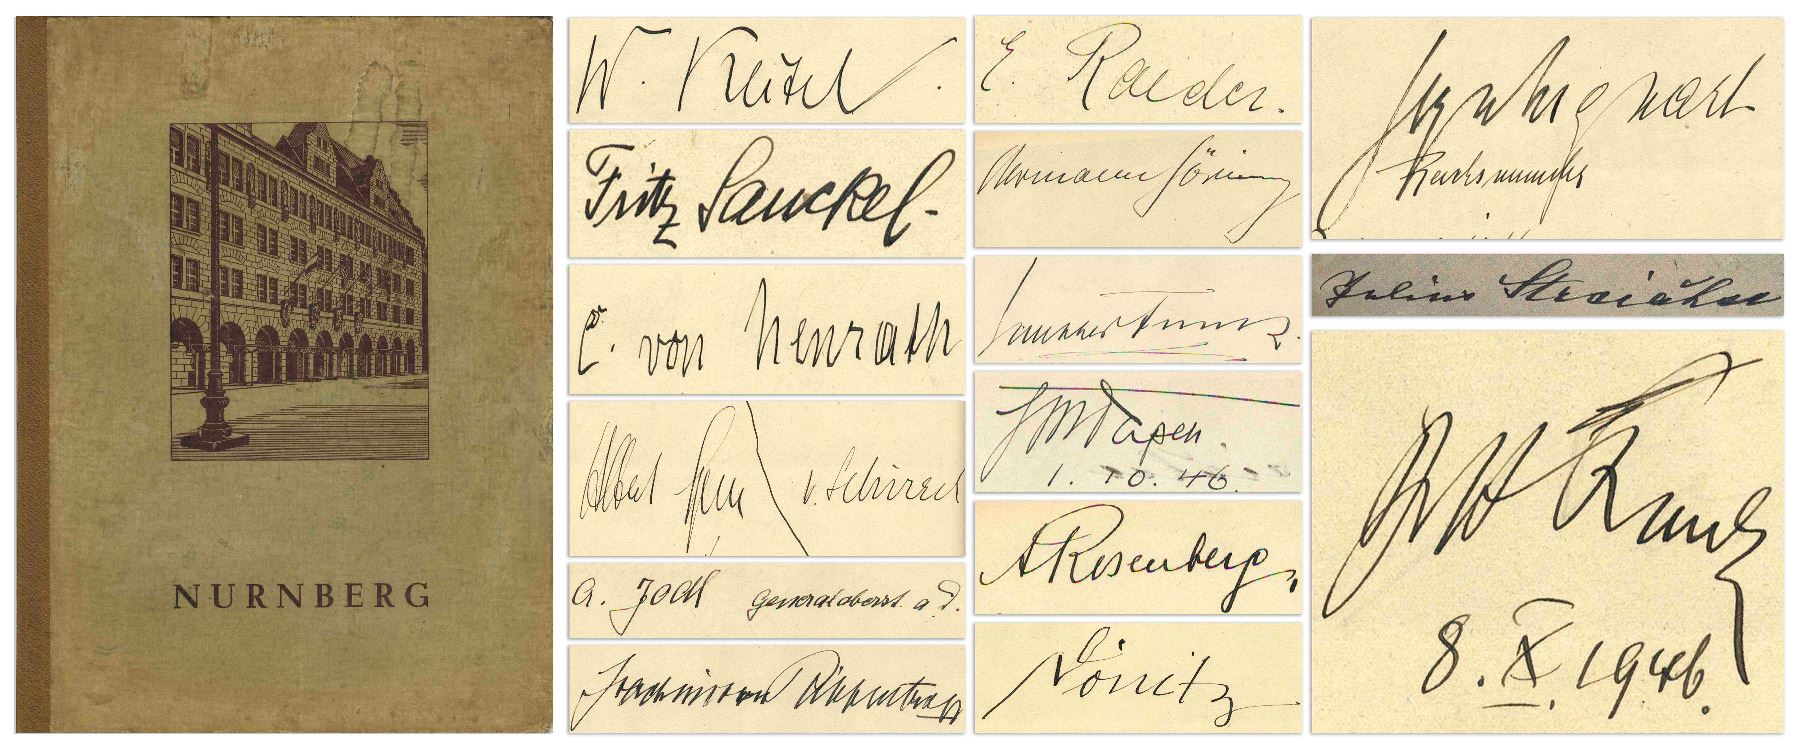 NURNBERG
W. Keitel
Fritz Sauckel
E. von Neurath
Albert Speer v. Schirach
A. Jodl Generaloberst a. D.
Joachim von Ribbentrop
E. Raeder.
Hermann Göring
F v Papen.
1. 10. 46.
A Rosenberg
Dönitz
Julius Streicher
8. X. 1946.